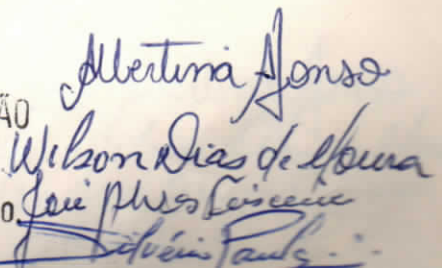 Albertina Afonso
ÃO
Wilson Dias de Moura
o José Alves
Silvério Paula